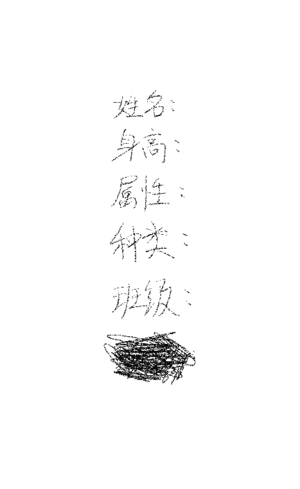 姓名:
身高:
属性:
种类:
班级: